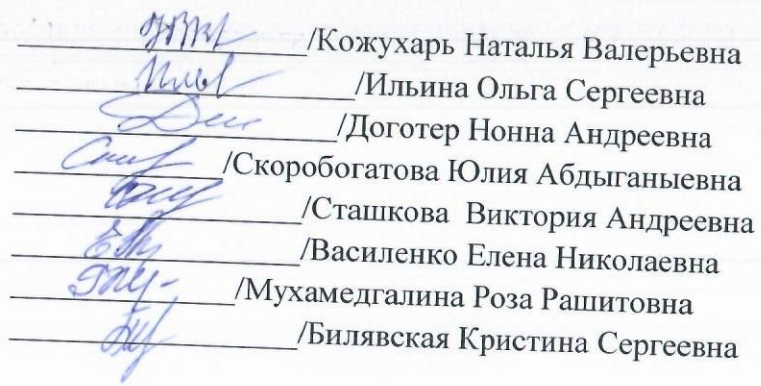 /Кожухарь Наталья Валерьевна
/Ильина Ольга Сергеевна
/Доготер Нонна Андреевна
/Скоробогатова Юлия Абдыганыевна
/Сташкова Виктория Андреевна
/Василенко Елена Николаевна
/Мухамедгалина Роза Рашитовна
/Билявская Кристина Сергеевна